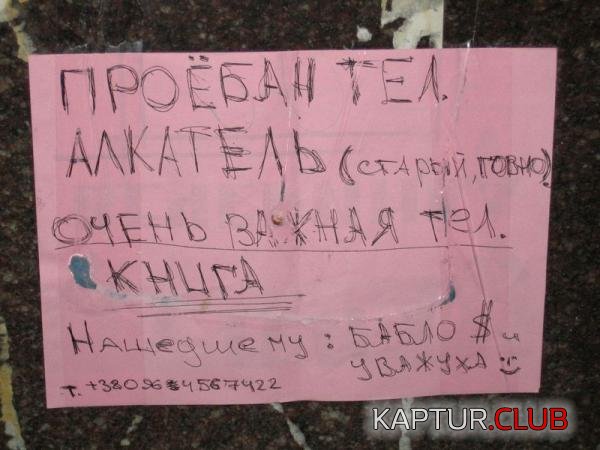 ПРОЁБАН ТЕЛ.
АЛКАТЕЛЬ (СТАРЫЙ, ГОВНО)
ОЧЕНЬ ВАЖНАЯ ТЕЛ.
КНИГА
Нашедшему: БАБЛО $ и
УВАЖУХА
т. +380964567422
KAPTUR.CLUB